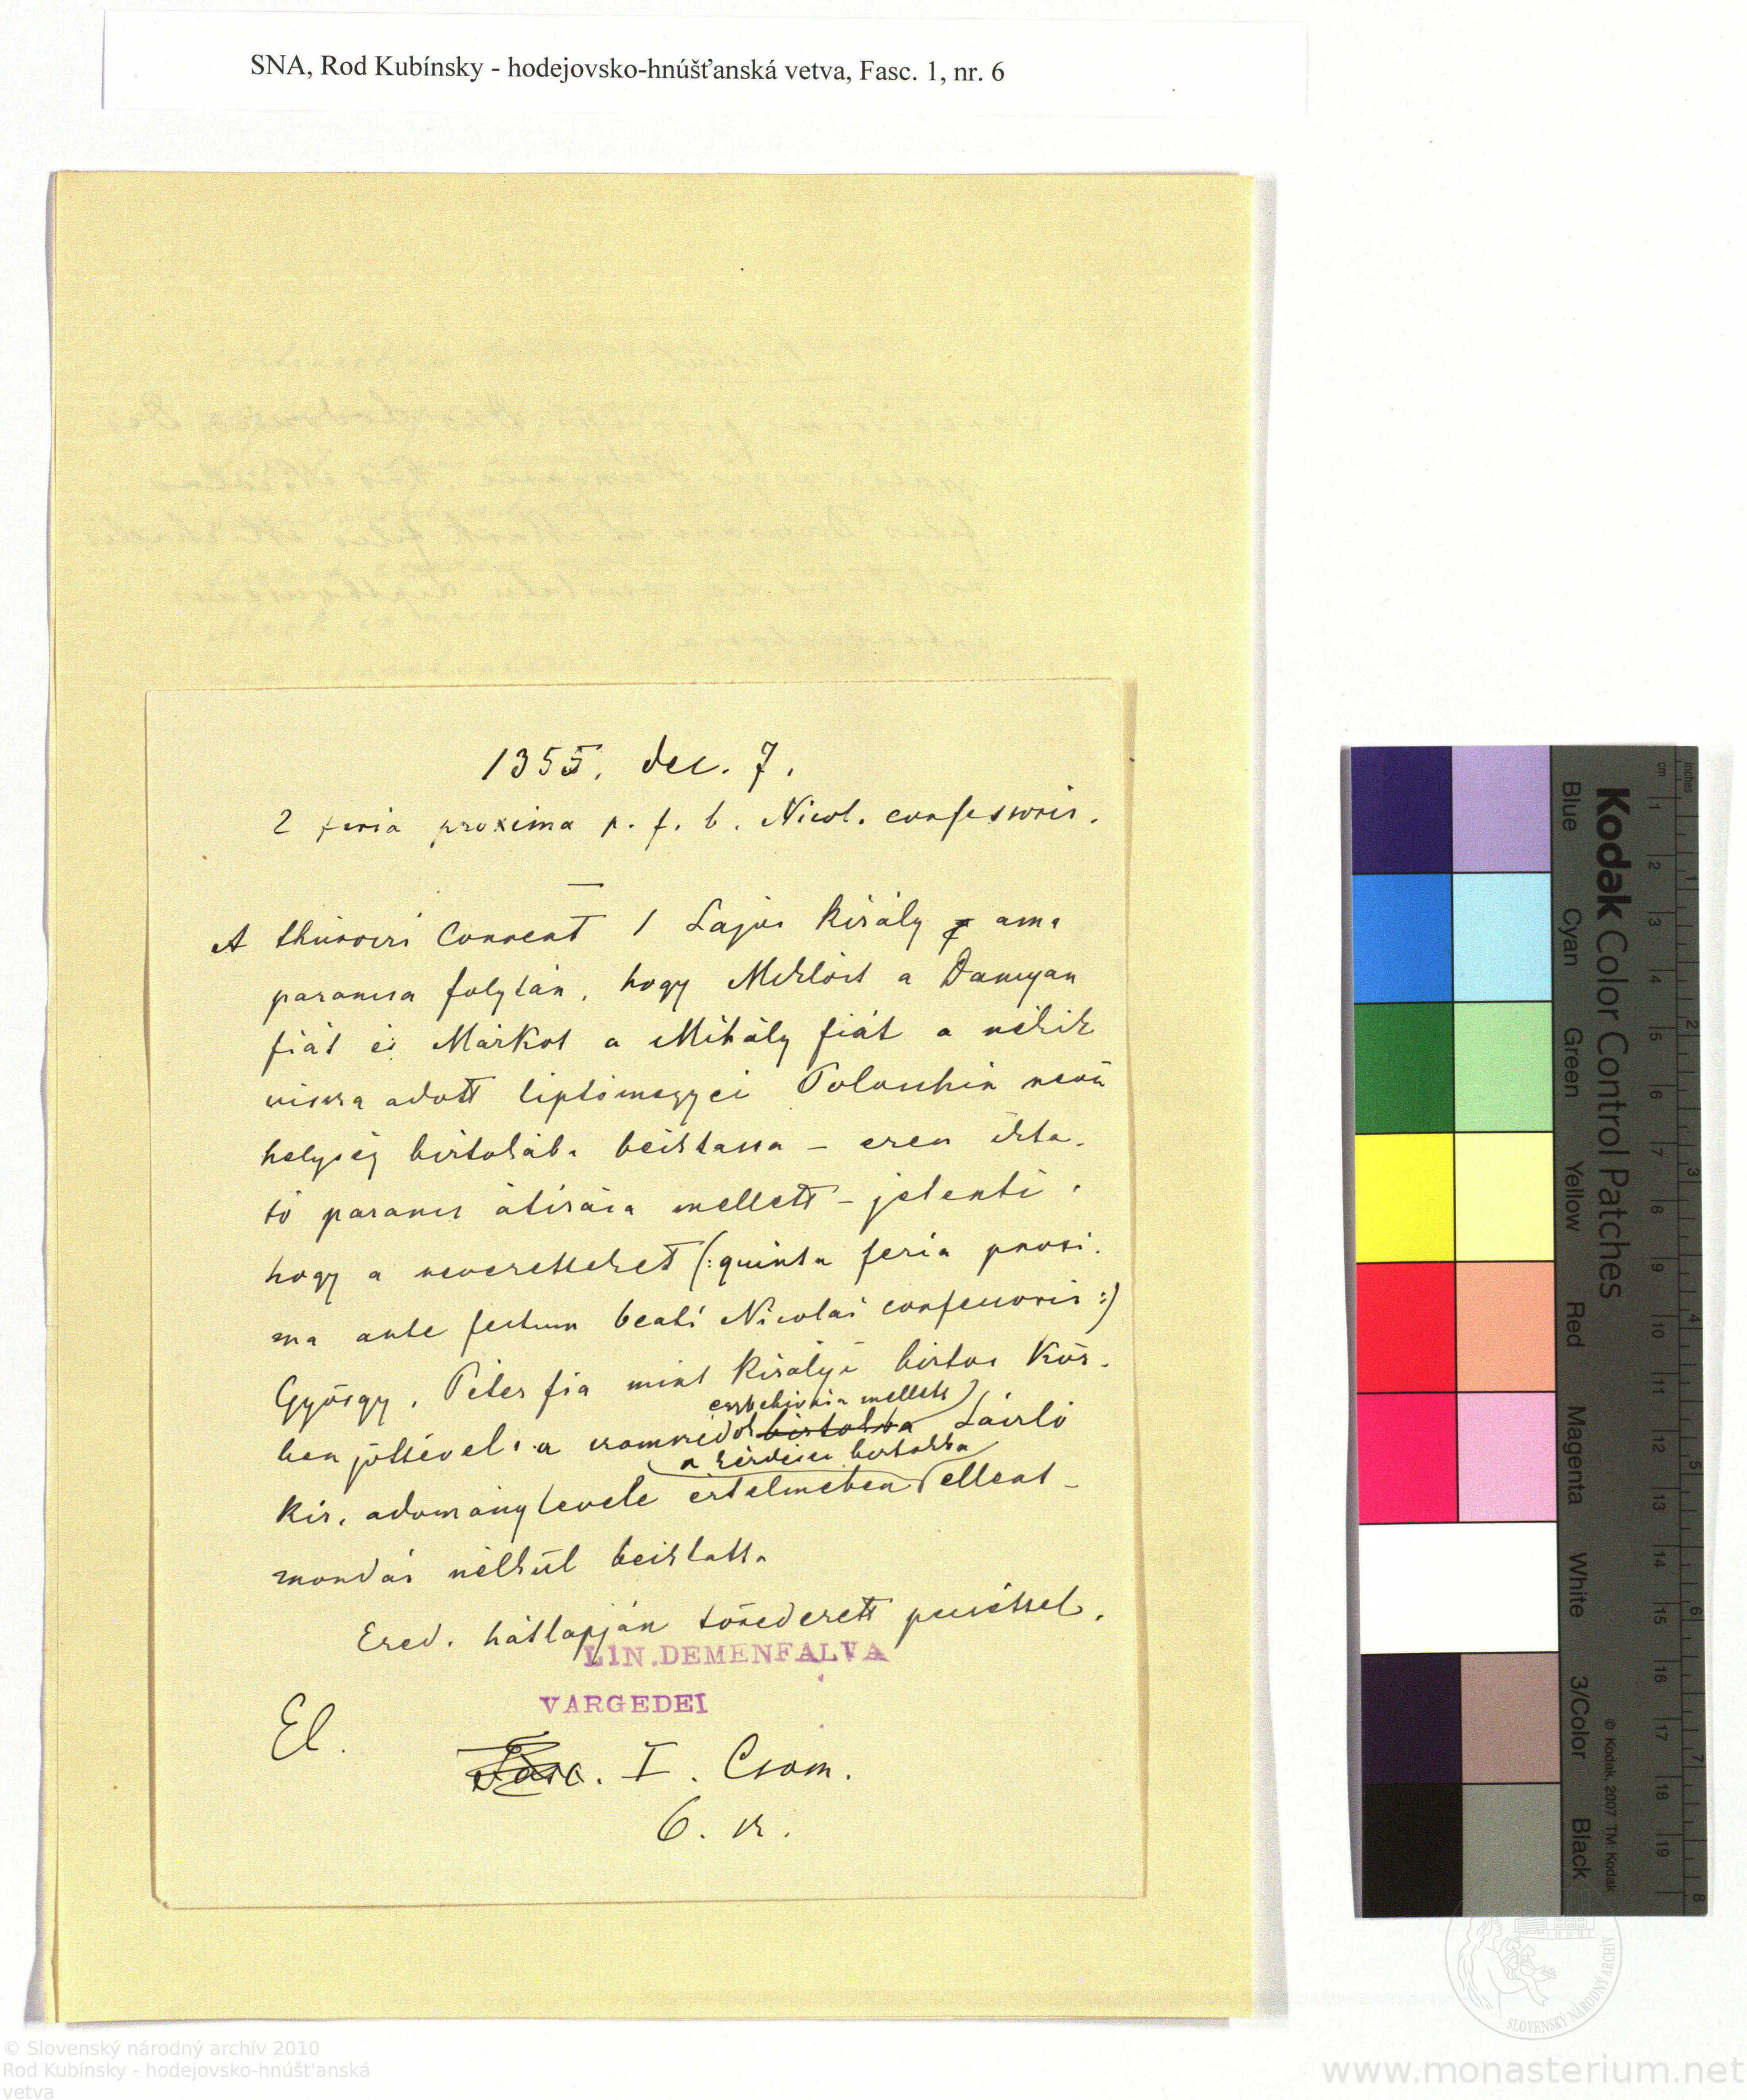 SNA, Rod Kubínsky - hodejovsko-hnúšťanská vetva, Fasc. 1, nr. 6
1355. dec. 7.
2 feria proxima p. f. b. Nicol. confessoris.
A thúróczi Convent I Lajos Király ama
parancsa folytán, hogy Miklóst a Damyan
fiát és Márkot a Mihály fiát a nékik
vissza adott liptómegyei Poloschin nevü
helység birtokába beiktassa – ezen ikta-
tó parancs átirása mellett – jelenti,
hogy a nevezetteket (: quinta feria proxi-
ma ante festum beati Nicolai confessoris :)
György, Péter fia mint Királyi biztos Köz-
egybehivása mellett
benjöttével a szomszédok birtokba László
a kérdéses birtokba
kir. adománylevele értelmében ellent-
mondás nélkül beiktatta
Ered. hátlapján töredezett pecséttel.
LIN.DEMENFALVA
VARGEDEI
El.
Fasc. I. Csom.
6. sz.
Kodak Color Control Patches
Blue Cyan Green Yellow Red Magenta White 3/Color Black
© Kodak, 2007 TM: Kodak
inches 1 2 3 4 5 6 7 8
cm 1 2 3 4 5 6 7 8 9 10 11 12 13 14 15 16 17 18 19
SLOVENSKÝ NÁRODNÝ ARCHÍV
© Slovenský národný archív 2010
Rod Kubínsky - hodejovsko-hnúšt'anská
vetva
www.monasterium.net